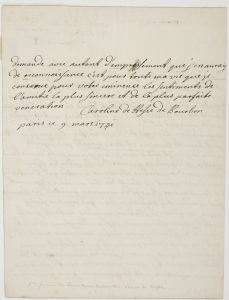 demande avec autant d'empressement que j'en auray
de reconnoissance c'est pour toute ma vie que je
conserve pour votre eminence les sentimens de
l'amitié la plus sincere et de la plus parfaite
veneration
Caroline de Hesse de Bourbon
paris ce 9 mars 1731